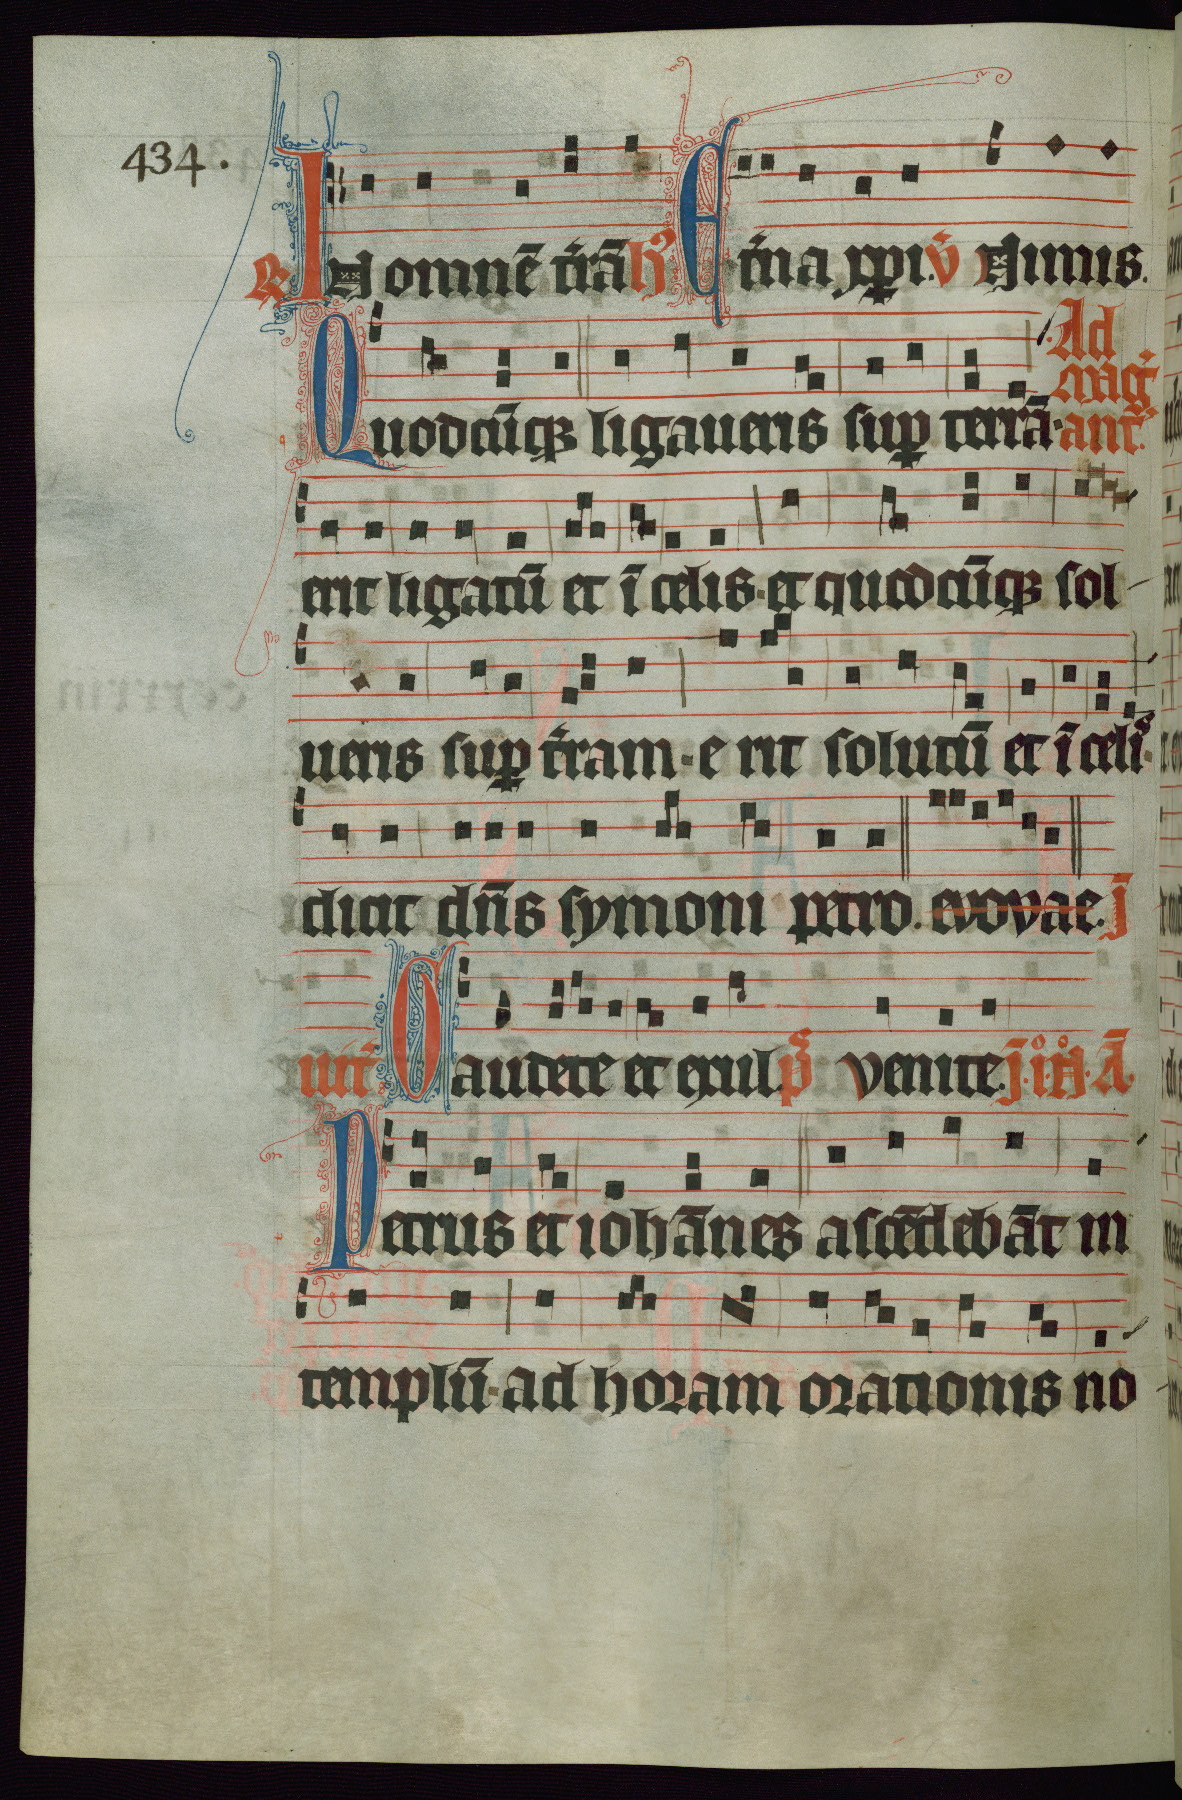 434.
R In omnē t̄rā h̄ Et̄na xp̄i. v̄ Nimis.
Quodcūqꝫ ligaueris sup̱ terrā. Ad mag̃ ant̄.
erit ligatū et ī celis. et quodcūqꝫ sol
ueris sup̱ t̄ram. e rit solutū et ī celis.
dicit dn̄s symoni petro. evovae. J
uit̄ Gaudete et exul. p̄s Venite. J. i. N. A.
Petrus et iohānes ascēdebāt in
templū. ad horam orationis no